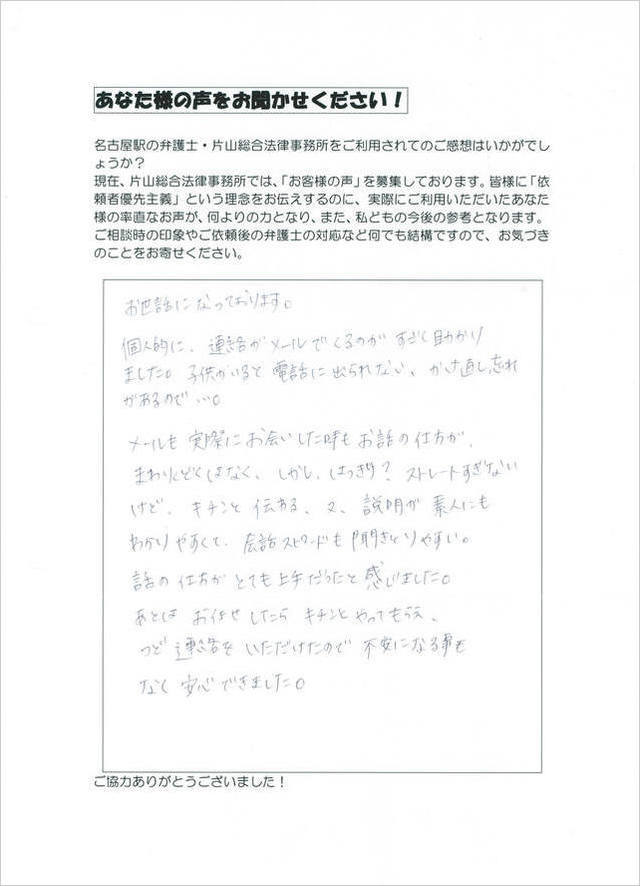 あなた様の声をお聞かせください！
名古屋駅の弁護士・片山総合法律事務所をご利用されてのご感想はいかがでし
ょうか？
現在、片山総合法律事務所では、「お客様の声」を募集しております。皆様に「依
頼者優先主義」という理念をお伝えするのに、実際にご利用いただいたあなた
様の率直なお声が、何よりの力となり、また、私どもの今後の参考となります。
ご相談時の印象やご依頼後の弁護士の対応など何でも結構ですので、お気づき
のことをお寄せください。
お世話になっております。
個人的に、連絡がメールでくるのがすごく助かり
ました。子供がいると電話に出られない、かけ直し忘れ
があるので…。
メールも実際にお会いした時もお話の仕方が、
まわりくどくはなく、しかし、はっきり？ストレートすぎない
けど、キチンと伝わる、又、説明が素人にも
わかりやすくて、会話スピードも聞きとりやすい。
話の仕方がとても上手だったと感じました。
あとはお任せしたらキチンとやってもらえ、
つど連絡をいただけたので不安になる事も
なく安心できました。
ご協力ありがとうございました！